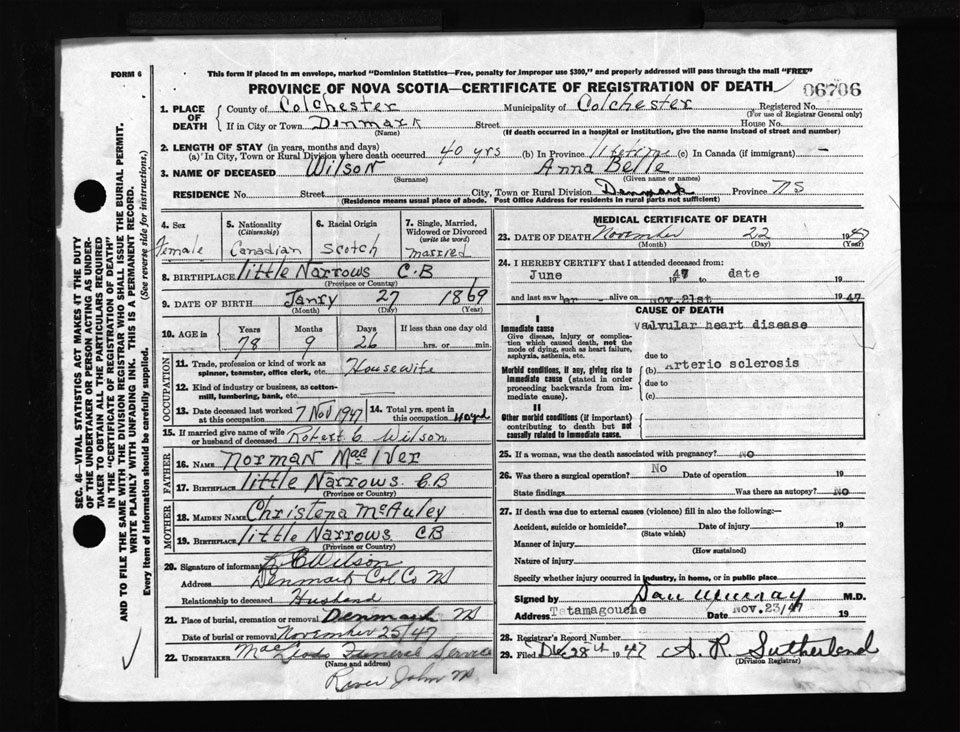 FORM 6
This form if placed in an envelope, marked "Dominion Statistics—Free, penalty for improper use $300," and properly addressed will pass through the mail "FREE"
PROVINCE OF NOVA SCOTIA—CERTIFICATE OF REGISTRATION OF DEATH
06706
1. PLACE OF DEATH County of Colchester Municipality of Colchester Registered No.
(For use of Registrar General only)
If in City or Town Denmark Street House No.
(Name) (If death occurred in a hospital or institution, give the name instead of street and number)
2. LENGTH OF STAY (in years, months and days)
(a) In City, Town or Rural Division where death occurred 40 yrs (b) In Province lifetime (c) In Canada (if immigrant) —
3. NAME OF DECEASED Wilson Anna Belle
(Surname) (Given name or names)
RESIDENCE No. Street City, Town or Rural Division Denmark Province NS
(Residence means usual place of abode. Post Office Address for residents in rural parts not sufficient)
4. Sex Female
5. Nationality (Citizenship) Canadian
6. Racial Origin Scotch
7. Single, Married, Widowed or Divorced (write the word) married
8. BIRTHPLACE little Narrows C.B
(Province or Country)
9. DATE OF BIRTH Janry 27 1869
(Month) (Day) (Year)
10. AGE in Years Months Days If less than one day old
78 9 26 hrs. or min.
OCCUPATION
11. Trade, profession or kind of work as spinner, teamster, office clerk, etc. Housewife
12. Kind of industry or business, as cotton-mill, lumbering, bank, etc. —
13. Date deceased last worked at this occupation 7 Nov 1947
14. Total yrs. spent in this occupation 40yrs
15. If married give name of wife or husband of deceased Robert C. Wilson
FATHER
16. NAME Norman MacIver
17. BIRTHPLACE little Narrows C.B
(Province or Country)
MOTHER
18. MAIDEN NAME Christena McAuley
19. BIRTHPLACE little Narrows CB
(Province or Country)
20. Signature of informant R C Wilson
Address Denmark Col. Co NS
Relationship to deceased Husband
21. Place of burial, cremation or removal Denmark NS
Date of burial or removal November 25/47
22. UNDERTAKER MacLeods Funeral Service
(Name and address)
River John NS
MEDICAL CERTIFICATE OF DEATH
23. DATE OF DEATH November 22 1947
(Month) (Day) (Year)
24. I HEREBY CERTIFY that I attended deceased from:
June 1947 to date 19
and last saw her alive on Nov. 21st 1947
CAUSE OF DEATH
I
Immediate cause
Give disease, injury or complication which caused death, not the mode of dying, such as heart failure, asphyxia, asthenia, etc.
valvular heart disease
due to
Morbid conditions, if any, giving rise to immediate cause (stated in order proceeding backwards from immediate cause).
(b) Arterio sclerosis
due to
(c)
II
Other morbid conditions (if important) contributing to death but not causally related to immediate cause.
25. If a woman, was the death associated with pregnancy? NO
26. Was there a surgical operation? No Date of operation 19
State findings Was there an autopsy? NO
27. If death was due to external causes (violence) fill in also the following:—
Accident, suicide or homicide? Date of injury 19
(State which)
Manner of injury
(How sustained)
Nature of injury
Specify whether injury occurred in industry, in home, or in public place
Signed by Dan Murray M.D.
Address Tatamagouche Date Nov. 23/47 19
28. Registrar's Record Number
29. Filed Dec 28th 1947 A. R. Sutherland
(Division Registrar)
SEC. 46—VITAL STATISTICS ACT MAKES IT THE DUTY
OF THE UNDERTAKER OR PERSON ACTING AS UNDERTAKER TO OBTAIN ALL THE PARTICULARS REQUIRED
IN THE "CERTIFICATE OF REGISTRATION OF DEATH"
AND TO FILE THE SAME WITH THE DIVISION REGISTRAR WHO SHALL ISSUE THE BURIAL PERMIT.
WRITE PLAINLY WITH UNFADING INK. THIS IS A PERMANENT RECORD.
Every item of information should be carefully supplied. (See reverse side for instructions.)